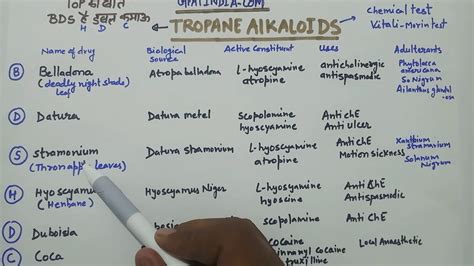 GPATINDIA.COM
BDS है डबल कमाऊ
H D C
TROPANE AlKALOIDS
Chemical test
Vitali-Morin test
Name of drug Biological source Active Constituent Uses Adulterants
B Belladona (deadly night shade) leaf Atropa belladona l-hyoscyamine atropine anticholinergic antispasmodic Phytolacca americana So.Nigrum Ailanthus glandul
D Datura Datura metel Scopolamine hyoscyamine Anti chE Anti ulcer
S Stramonium leaves) Datura stramonium l-Hyoscyamine atropine AntichE Antispasmodic Xanthium stramarium Solanum Nigrum
H Hyoscyamu (Henbane) Hyoscyamus Niger l-Hyoscyamine hyoscine Anti chE Antispasmodic
D Duboisia scopolamine Anti chE
C Coca cocaine Local Anaesthetic